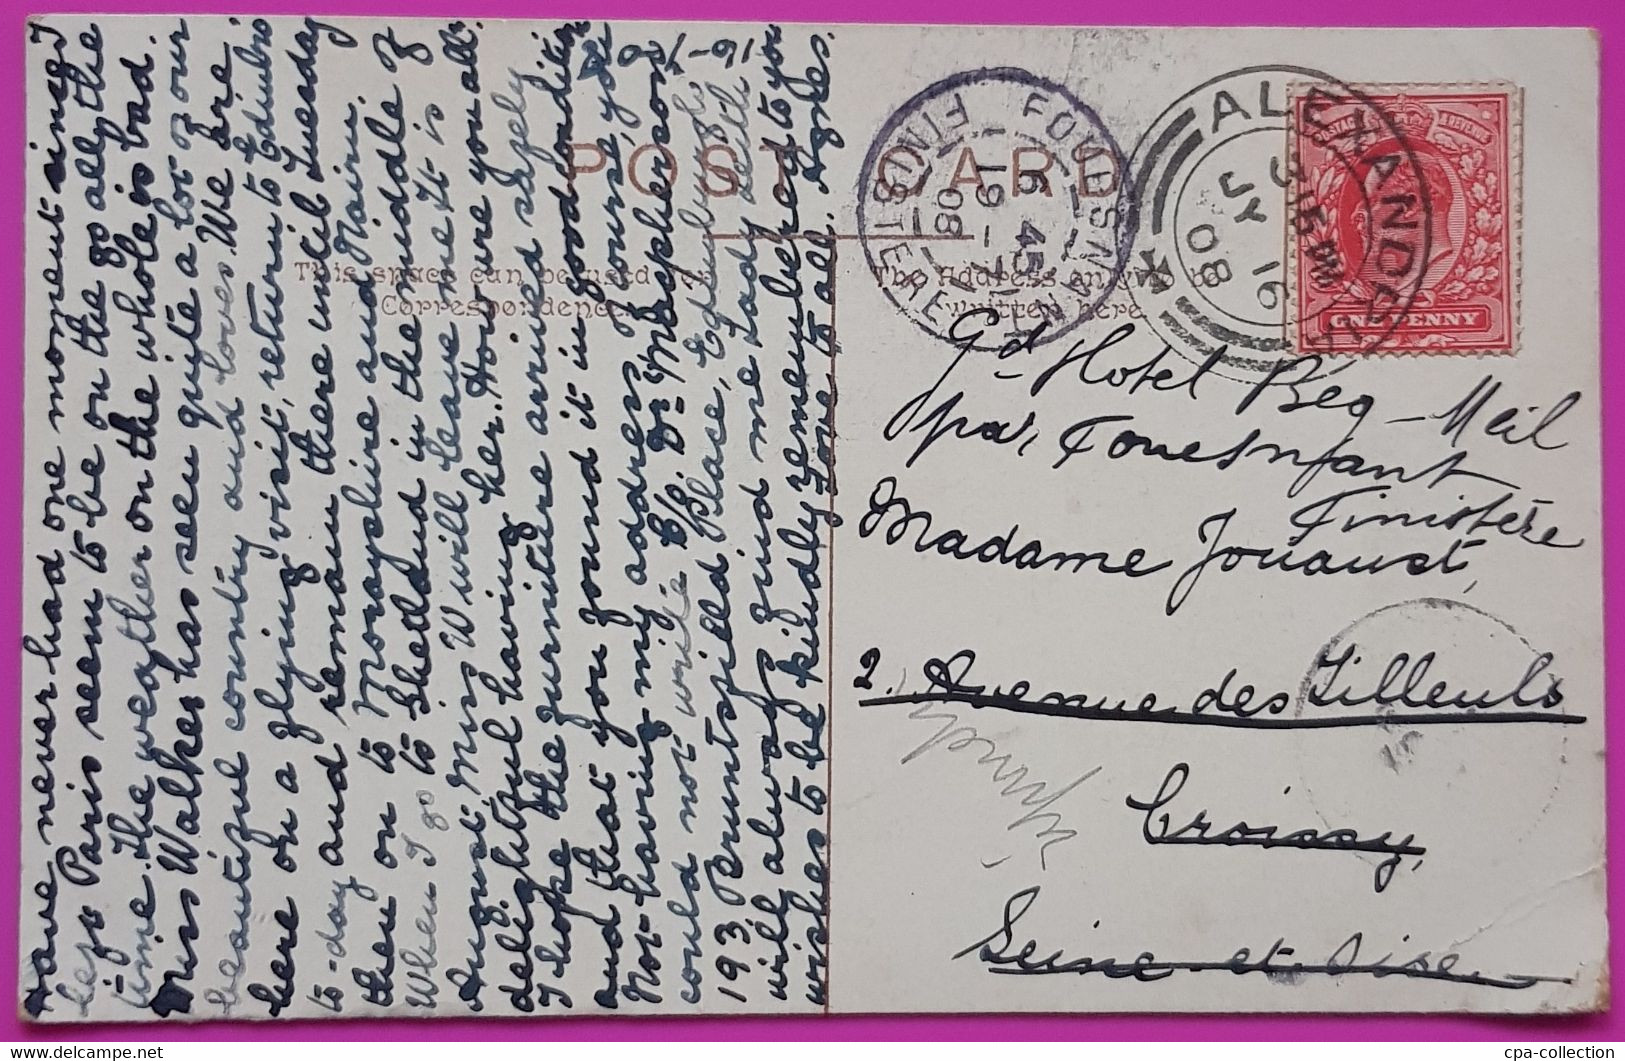 Have never had one moment since I
left Paris seem to be on the go all the
time. The weather on the whole is bad.
Miss Walker has seen quite a lot of our
beautiful country and loves. We are
here on a flying visit, return to Edinbro
to-day and remain there until Tuesday
then on to Morayshire and Nairn.
When I go to Shetland in the middle of
August, Miss W will leave me. It is
delightful having her. How are you all.
I hope the furniture arrived safely
and that you found it in good condition
Not having my address of course, you
could not write C/o Dr. Macpherson
193, Bruntsfield Place, Edinburgh
will always find me. Lady
wishes to be kindly remembered to you
Love to all. Agnes.
16-7-08
POST CARD
This space can be used for
Correspondence.
The Address only to be
written here.
FOUESNANT
6 45
19 - 7
08
FINISTERE
ALEXANDRIA
3 15 PM
JY 16
08
POSTAGE & REVENUE
ONE PENNY
Gd Hotel Beg-Meil
par Fouesnant
Finistère
Madame Jouaust,
2. Avenue des Tilleuls
Croissy,
Seine-et-Oise
cpa-collection